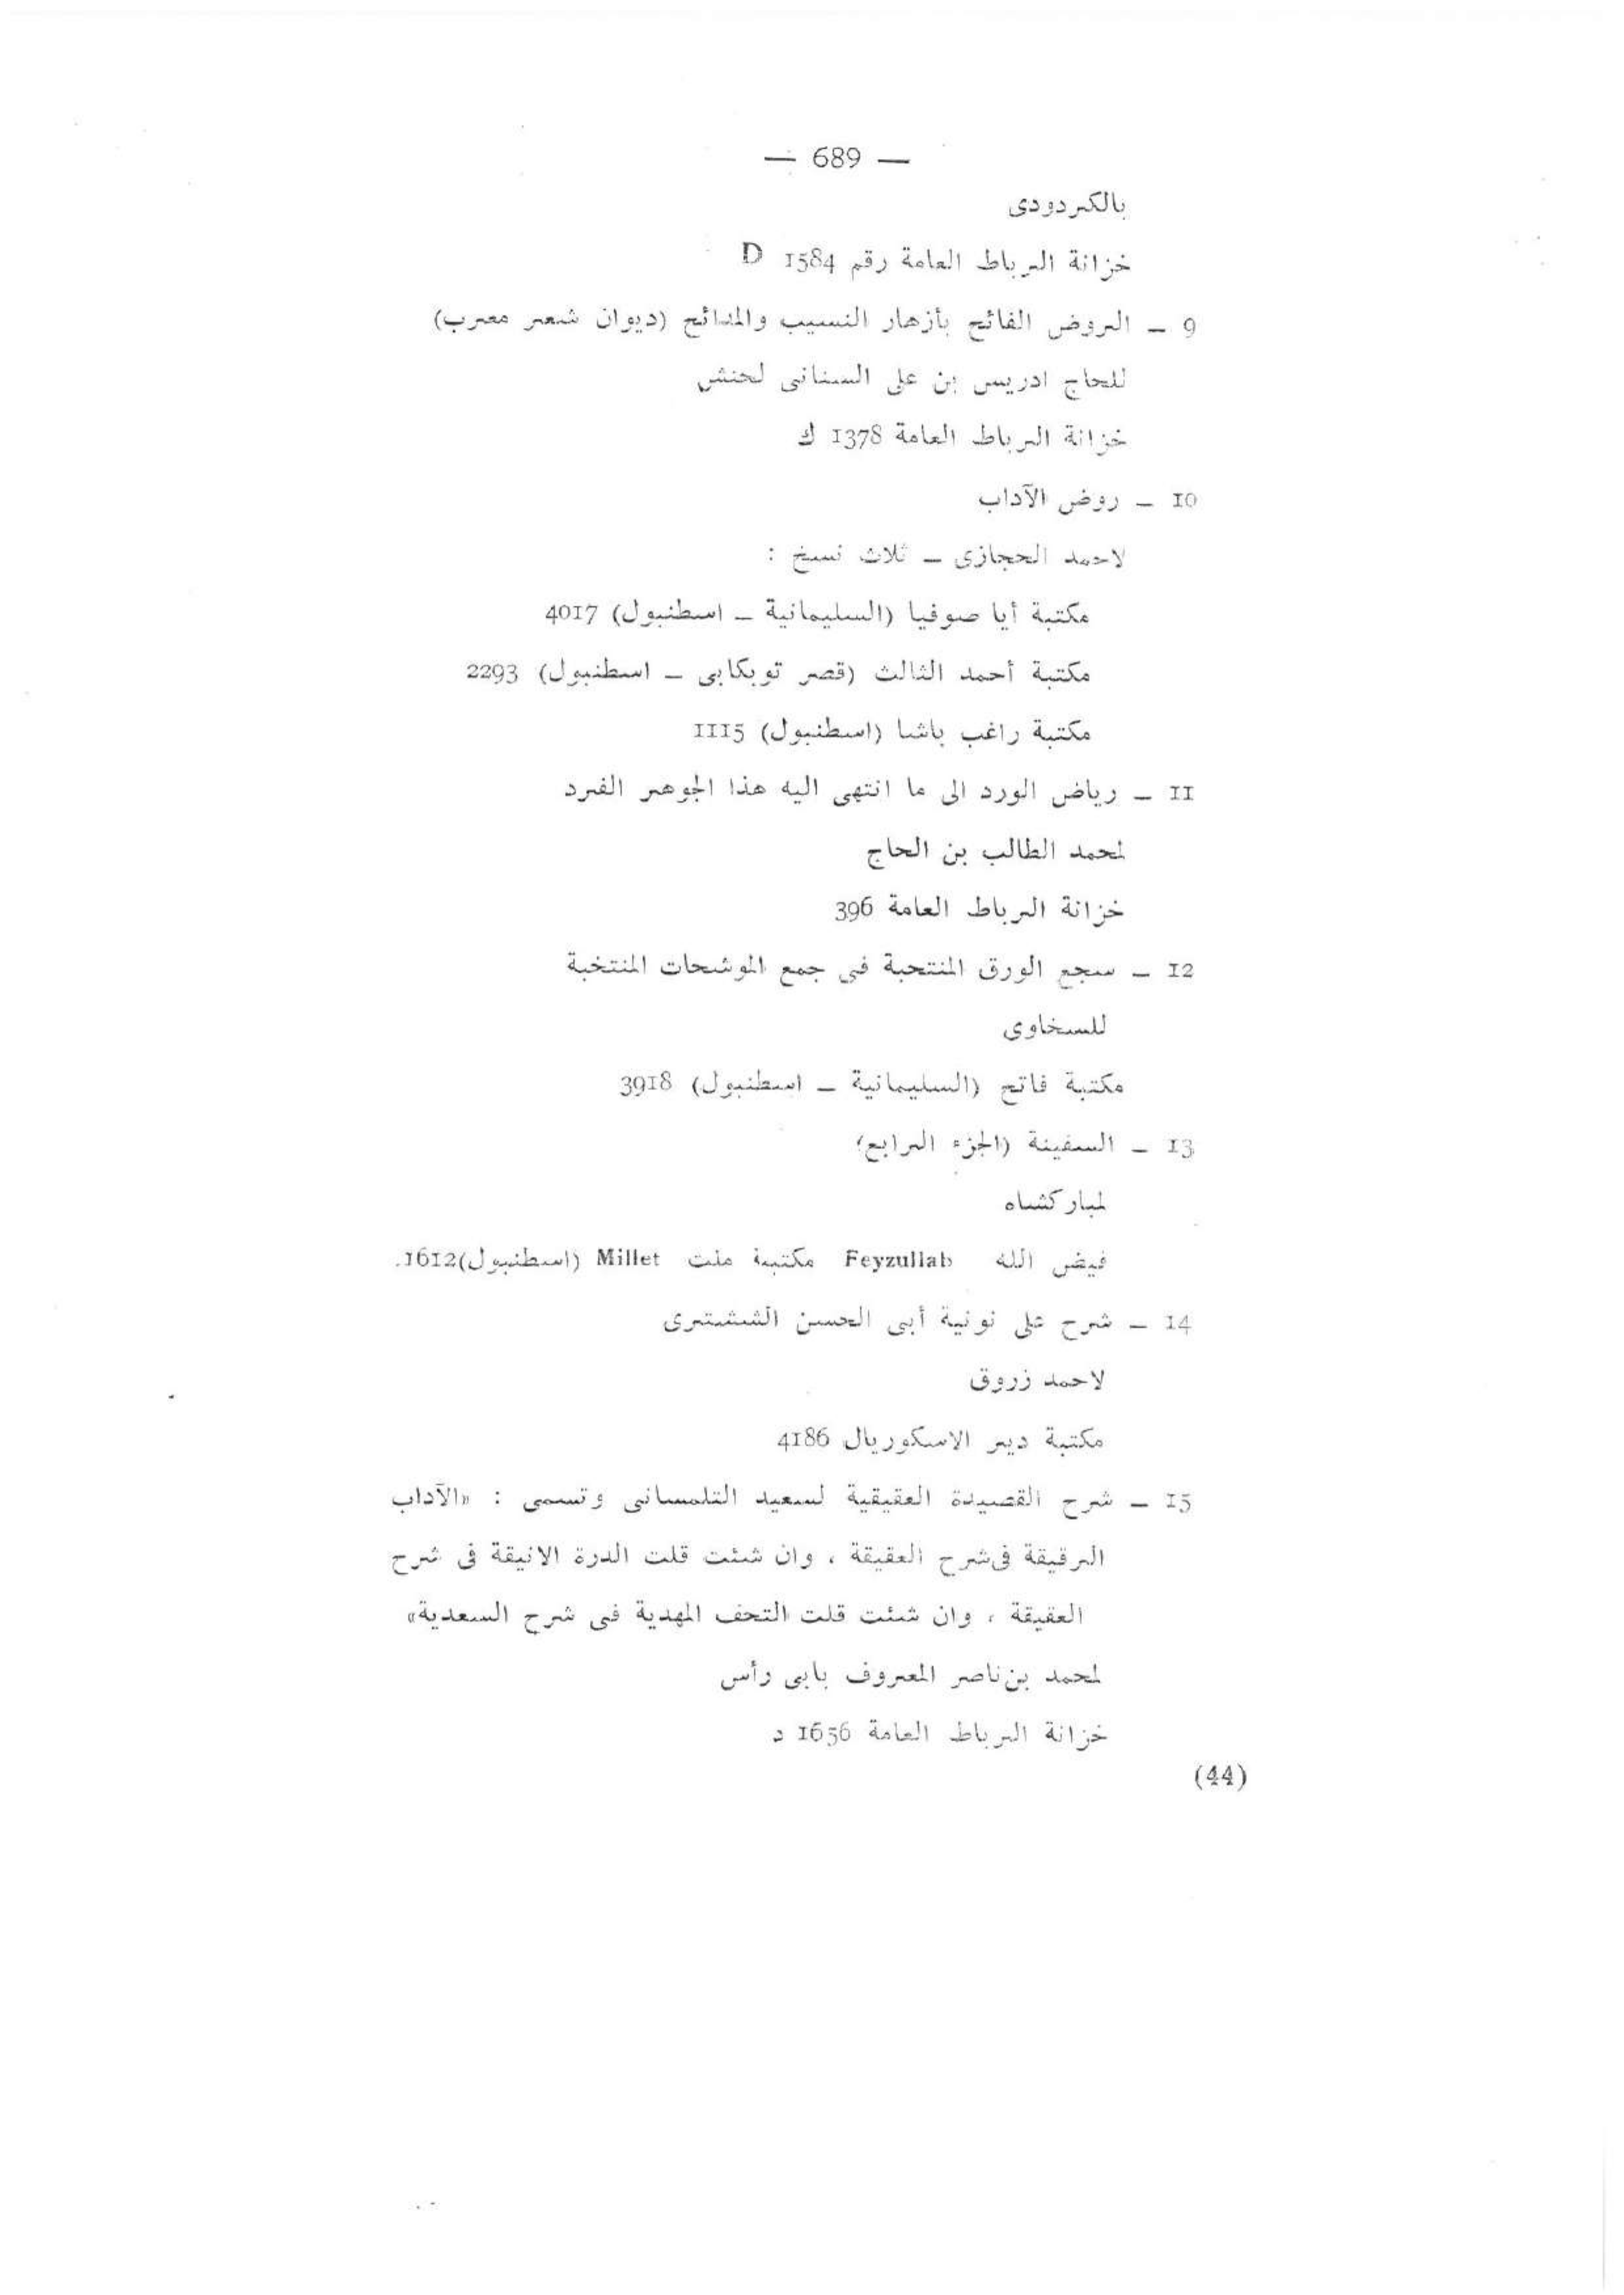 — 689 —
بالكردودى
خزانة الرباط العامة رقم 1584 D
9 – الروض الفائح بأزهار النسيب والمدائح (ديوان شعر معرب)
للحاج ادريس بن على السنانى لحنش
خزانة الرباط العامة 1378 ك
10 – روض الآداب
لاحمد الحجازى – ثلاث نسخ :
مكتبة أيا صوفيا (السليمانية – اسطنبول) 4017
مكتبة أحمد الثالث (قصر توبكابى – اسطنبول) 2293
مكتبة راغب باشا (اسطنبول) 1115
11 – رياض الورد الى ما انتهى اليه هذا الجوهر الفرد
لمحمد الطالب بن الحاج
خزانة الرباط العامة 396
12 – سجع الورق المنتحبة فى جمع الموشحات المنتخبة
للسخاوى
مكتبة فاتح (السليمانية – اسطنبول) 3918
13 – السفينة (الجزء الرابع)
لمباركشاه
فيض الله Feyzullah مكتبة ملت Millet (اسطنبول)1612.
14 – شرح على نونية أبى الحسن الششترى
لاحمد زروق
مكتبة دير الاسكوريال 4186
15 – شرح القصيدة العقيقية لسعيد التلمسانى وتسمى : «الآداب
الرقيقة فى شرح العقيقة ، وان شئت قلت الدرة الانيقة فى شرح
العقيقة ، وان شئت قلت التحف المهدية فى شرح السعدية»
لمحمد بن ناصر المعروف بابى رأس
خزانة الرباط العامة 1656 د
(44)